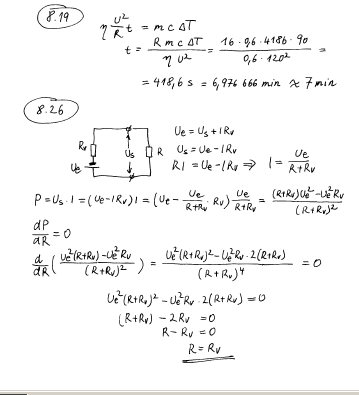 8.19
η U²/R t = m c ΔT
t = R m c ΔT / η U² = 16 · 0,6 · 4186 · 90 / 0,6 · 120² =
= 418,6 s = 6,976 666 min ≈ 7 min
8.26
Rv Ue Us R
Ue = Us + I Rv
Us = Ue - I Rv
R I = Ue - I Rv ⇒ I = Ue / R+Rv
P = Us · I = (Ue - I Rv) I = (Ue - Ue/R+Rv · Rv) Ue/R+Rv = (R+Rv)Ue² - Ue² Rv / (R+Rv)²
dP/dR = 0
d/dR ( Ue²(R+Rv) - Ue² Rv / (R+Rv)² ) = Ue²(R+Rv)² - Ue² Rv · 2(R+Rv) / (R+Rv)⁴ = 0
Ue²(R+Rv)² - Ue² Rv · 2(R+Rv) = 0
(R+Rv) - 2Rv = 0
R - Rv = 0
R = Rv